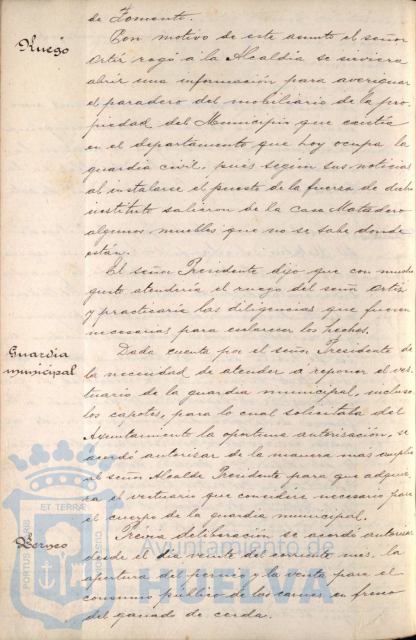 de Fomento.
Ruego
Con motivo de este asunto el señor
Ortiz rogó á la Alcaldia se sirviera
abrir una información para averiguar
el paradero del mobiliario de la pro-
piedad del Municipio que existia
en el departamento que hoy ocupa la
guardia civil, pues según sus noticias
al instalarse el puesto de la fuerza de dicho
instituto salieron de la Casa Matadero
algunos muebles que no se sabe donde
están.
El señor Presidente dijo que con mucho
gusto atendería el ruego del señor Ortiz
y practicaría las diligencias que fueren
necesarias para esclarecer los hechos.
Guardia
municipal
Dada cuenta por el señor Presidente de
la necesidad de atender a reponer el ves-
tuario de la guardia municipal, incluso
los capotes, para lo cual solicitaba del
Ayuntamiento la oportuna autorización, se
acordó autorizar de la manera mas amplia
al señor Alcalde Presidente para que adquie-
ra el vestuario que considere necesario para
el cuerpo de la guardia municipal.
Previa deliberación se acordó autorizar
desde el dia veinte del actual mes, la
apertura del y la venta para el
consumo público de las carnes en fresco
del ganado de cerda.
PORTUS MARIS
ET TERRAE
Ayuntamiento de
HUELVA